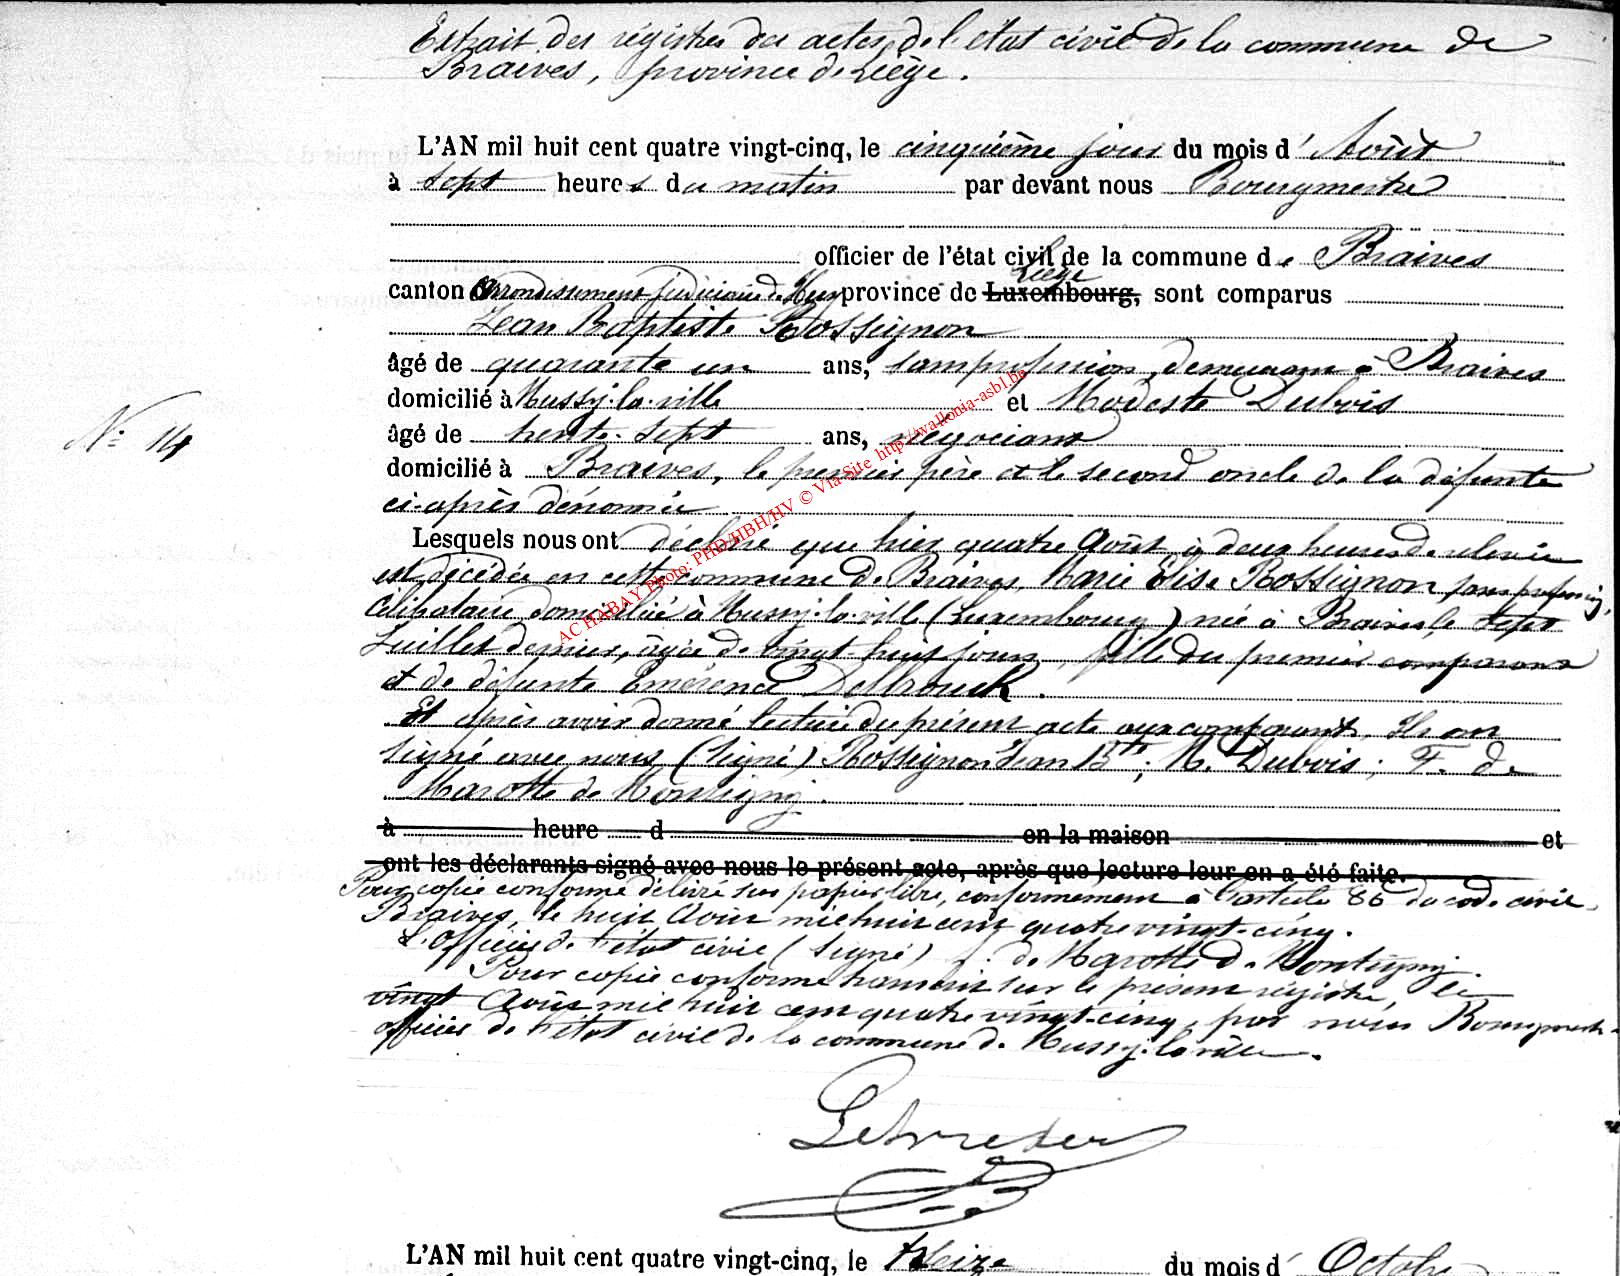 Extrait des régistres des actes de l'état civil de la commune de
Braives, province de Liège.
L'AN mil huit cent quatre vingt-cinq, le cinquième jour du mois d' Août
à sept heures du matin par devant nous Bourgmestre
officier de l'état civil de la commune de Braives
canton arrondissement judiciaire de Huy province de Luxembourg, Liège sont comparus
Jean Baptiste Rossignon
âgé de quarante un ans, sans profession, demeurant à Braives
domicilié à Mussy-la-ville et Modeste Dubois
N° 14
âgé de trente-sept ans, négociant
domicilié à Braives, le premier père et le second oncle de la défunte
ci-après dénomée
Lesquels nous ont déclaré que hier quatre Août, à deux heures de relevée
est décédée en cette commune de Braives, Marie Elise Rossignon, sans profession,
célibataire, domiciliée à Mussy-la-ville (Luxembourg) née à Braives le sept
Juillet dernier, âgée de vingt huit jours, fille du premier comparant
et de défunte Emérence Delbrouck.
Et après avoir donné lecture du présent acte aux comparants, ils ont
signé avec nous (signé) Rossignon Jean Bte; M. Dubois; F. de
Marotte de Montigny.
à heure d en la maison et
ont les déclarants signé avec nous le présent acte, après que lecture leur en a été faite.
Pour copie conforme délivré sur papier libre, conformément à l'article 80 du code civil,
Braives, le huit Août mil huit cent quatre vingt-cinq.
L'officier de l'état civil (signé) F. de Marotte de Montigny.
Pour copie conforme transcrit sur le présent régistre, le
vingt Août mil huit cent quatre vingt-cinq, par nous Bourgmestre
officier de l'état civil de la commune de Mussy-la-ville.
AC HABAY Photo: PHD/HBH/HV © Via Site http://wallonia-asbl.be
L'AN mil huit cent quatre vingt-cinq, le treize du mois d' Octobre